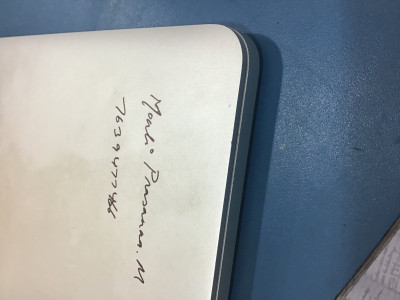 Mouli Prasanna. M
7639477466